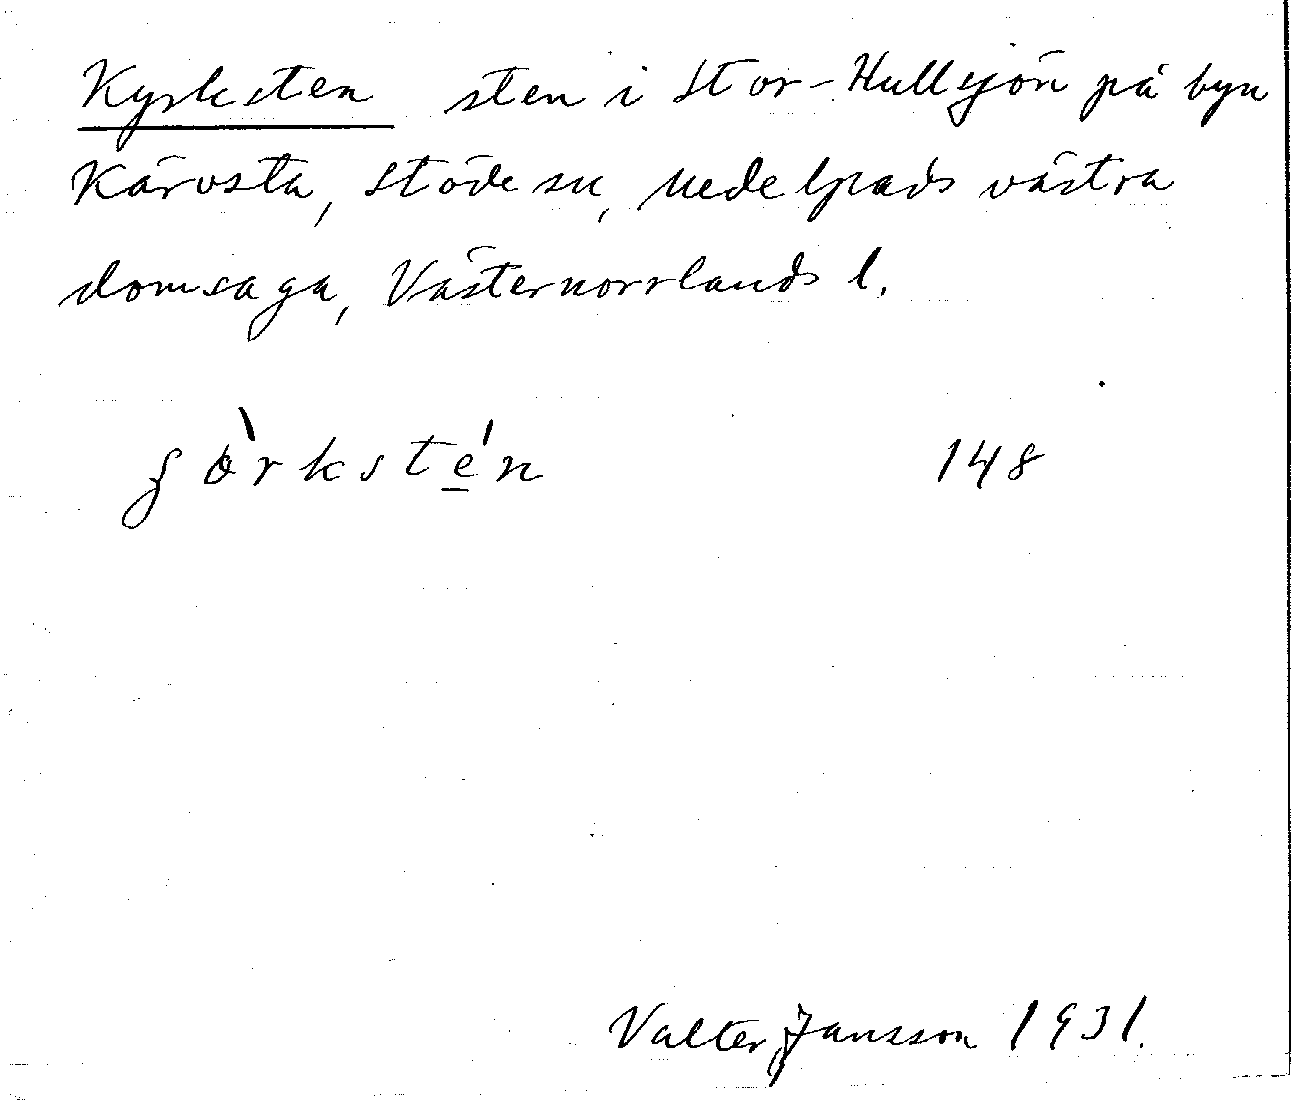 Kyrksten sten i Stor-Hullsjön på byn
Kärvsta, Stöde sn, Medelpads västra
domsaga, Västernorrlands l.
ʒòrkstén 148
Valter Jansson 1931.